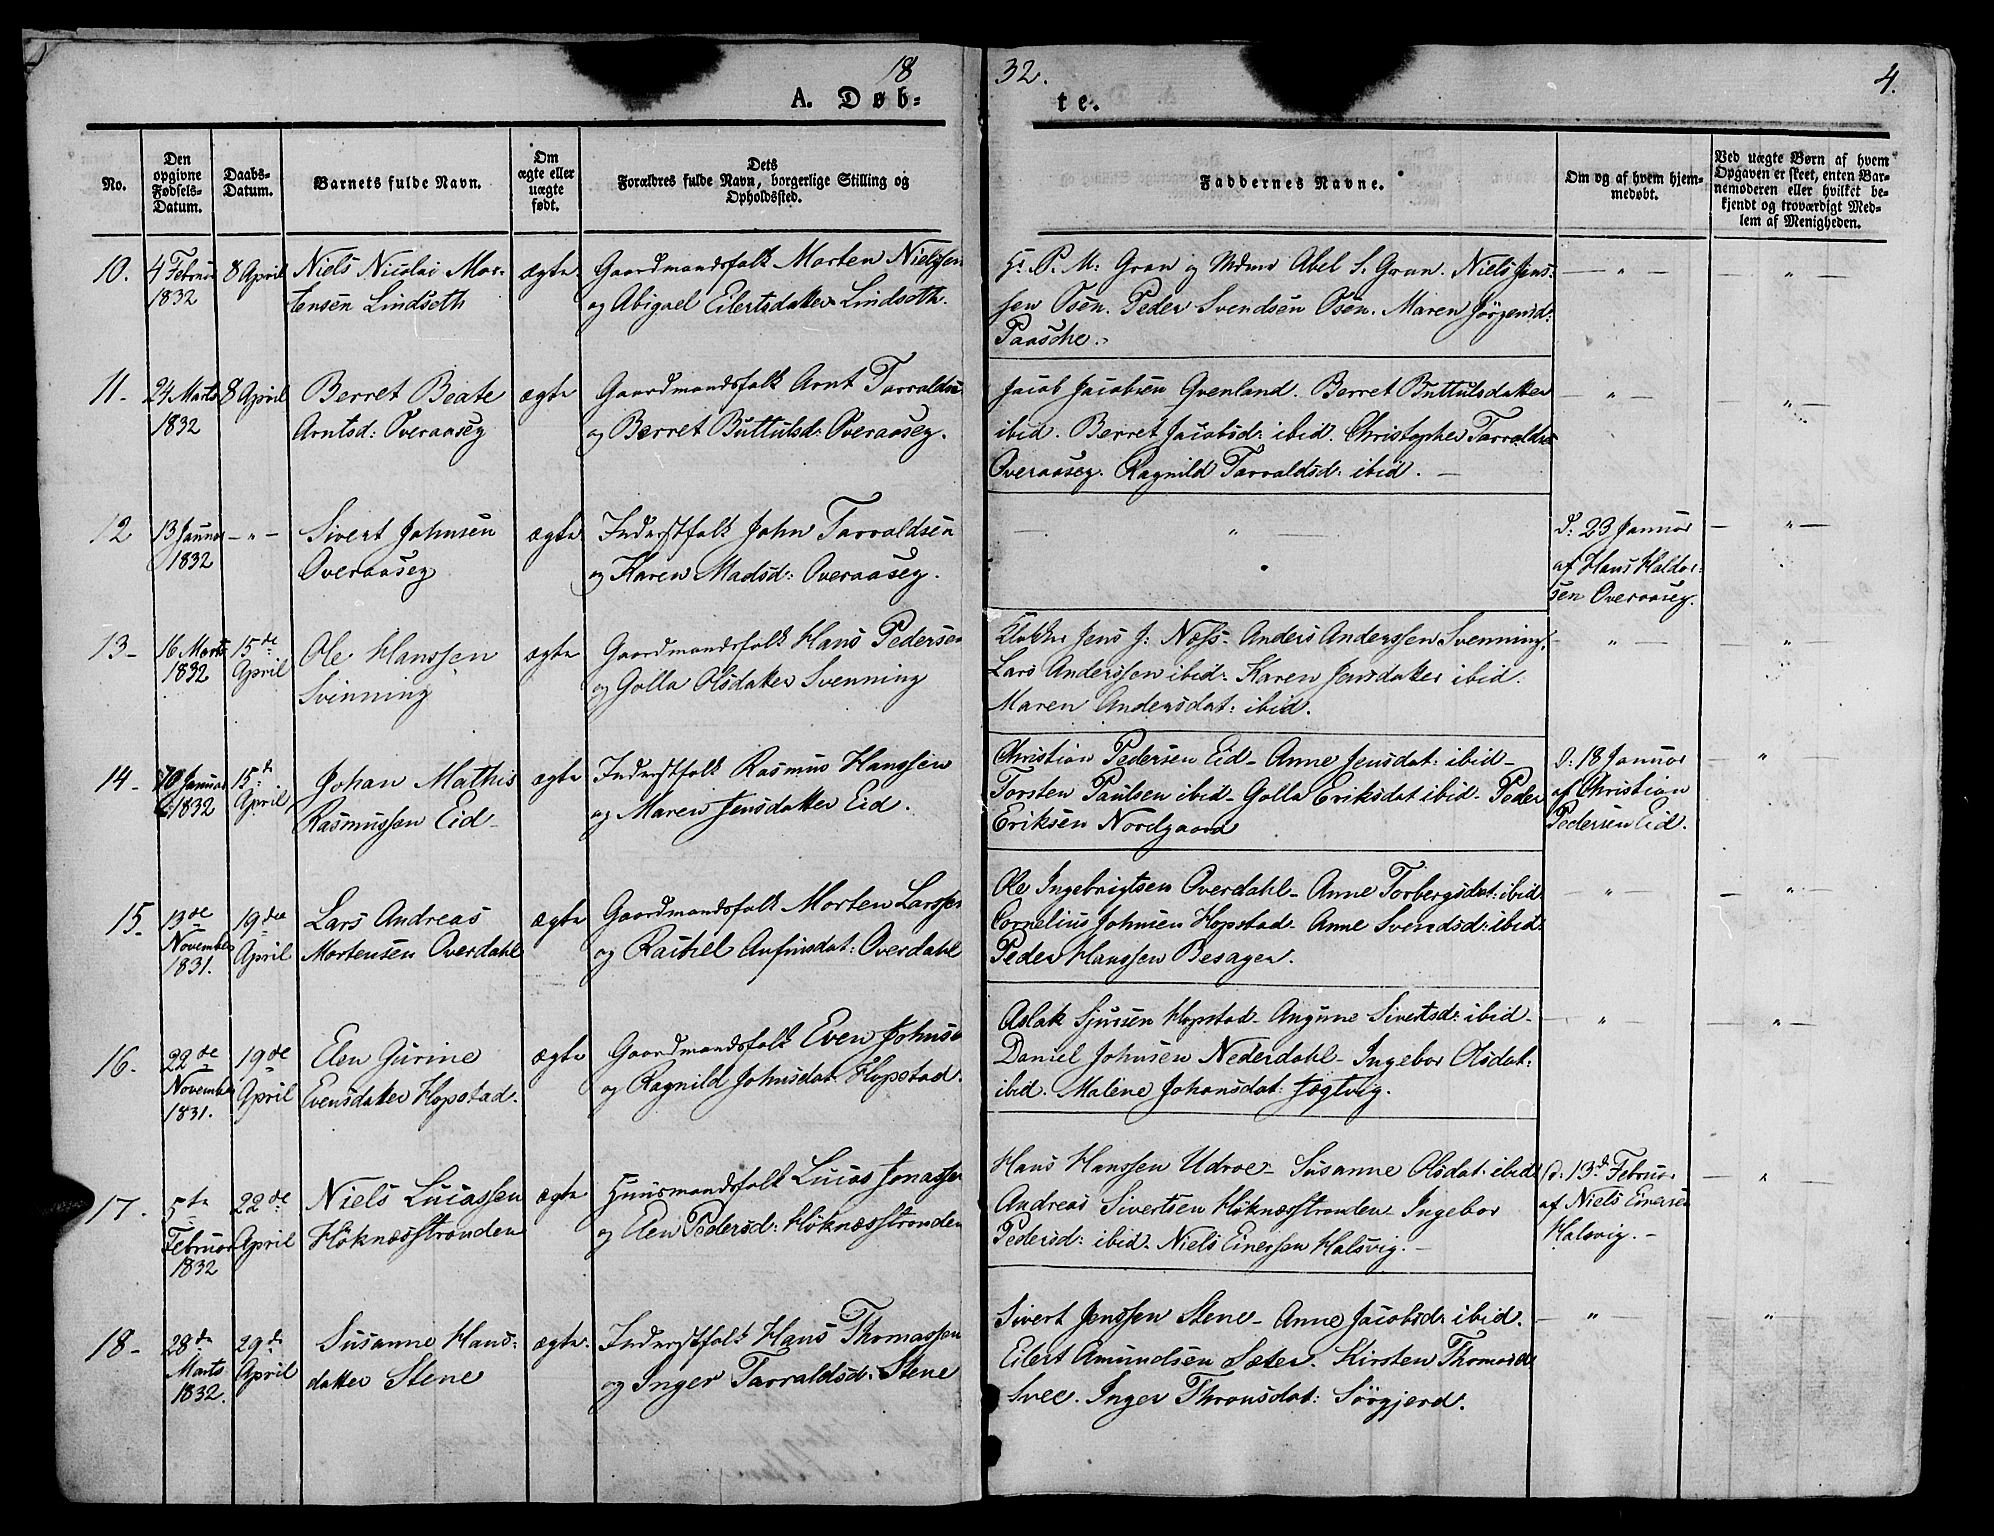 1832.
4.
A. Døb-te.
No.
Den opgivne Fødsels-Datum.
Daabs-Datum.
Barnets fulde Navn.
Om ægte eller uægte født.
Dets Forældres fulde Navn, borgerlige Stilling og Opholdssted.
Faddernes Navne.
Om og af hvem hjemmedøbt.
Ved uægte Børn af hvem Opgaven er skeet, enten Barnemoderen eller hvilket bekjendt og troværdigt Medlem af Menigheden.
10. 4 Februar 1832 8 April
Niels Nicolai Mor-
tensen Lindseth
ægte
Gaardmandsfolk Morten Nielssen
og Abigael Eilertsdatter Lindseth.
Hr. P. M: Gran og Mdme Abel S. Gran. Niels Jens-
sen Osen. Peder Svendsen Osen. Maren Jörgensd:
Paasche.
— " —
— " —
11- 24 Marts 1832 8 April
Berret Beate
Arntsd: Overaaseg
ægte
Gaardmandsfolk Arnt Tarraldsen
og Berret Buttulsd: Overaaseg.
Jacob Jacobsen Qvenland. Berret Buttulsdatter
ibid. Berret Jacobsd: ibid. Christopher Tarralds:
Overaaseg. Ragnild Tarraldsd: ibid. —
— " —
— " —
12 13 Januar 1832 - " -
Sivert Johnsen
Overaaseg
ægte
Inderstfolk John Tarraldsen
og Karen Madsd: Overaaseg.
— " —
d: 23 Januar
af Hans Haldor-
sen Overaaseg.
— " —
13- 16 Marts 1832 15de April
Ole Hanssen
Svinning
ægte
Gaardmandsfolk Hans Pedersen
og Golla Olsdatter Svenning
Klokker Jens J: Næss- Anders Anderssen Svenning.
Lars Anderssen ibid: Karen Jensdatter ibid.
Maren Andersdat: ibid.
— " —
— " —
14- 10 Januar 1832 15de April
Johan Mathis
Rasmussen Eid-
ægte
Inderstfolk Rasmus Hanssen
og Maren Jensdatter Eid.
Christian Pedersen Eid- Anne Jensdat: ibid-
Torsten Paulsen ibid- Golla Eriksdat ibid- Peder
Eriksen Nordgaard
d: 18 Januar
af Christian
Pedersen Eid.
— " —
15- 13de November 1831. 19de April
Lars Andreas
Mortensen Overdahl
ægte
Gaardmandsfolk Morten Larssen
og Rachel Anfinsdat: Overdahl
Ole Ingebrigtsen Overdahl- Anne Torbergsdat: ibid.
Cornelius Johnsen Hopstad- Anne Svendsd: ibid.
Peder Hanssen Besager.
— " —
— " —
16. 22de November 1831. 19de April
Elen Gurine
Evensdatter Hopstad.
ægte
Gaardmandsfolk Even Johnsen
og Ragnild Johnsdat: Hopstad.
Aslak Sjursen Hopstad- Angune Sivertsd: ibid-
Daniel Johnsen Nederdahl- Ingebor Olsdat:
ibid. Malene Johansdat: Jægtvig.
— " —
— " —
17. 5te Februar 1832 22de April
Niels Lucassen
Höknæsstranden
ægte
Huusmandsfolk Lucas Jonassen
og Elen Pedersd: Höknæsstranden
Hans Hanssen Udroe- Susanne Olsdat: ibid
Andreas Sivertsen Höknæsstranden- Ingebor
Pedersd: ibid- Niels Einersen Halsvig. —
d: 13de Februar
af Niels Einersen
Halsvig. —
— " —
18- 28de Marts 1832. 29de April
Susanne Hans-
datter Stene
ægte.
Inderstfolk Hans Thomassen
og Inger Tarraldsd: Stene
Sivert Jenssen Stene- Anne Jacobsd: ibid.
Eilert Amundsen Sæter. Kirsten Thomasd:
Svee. Inger Thronsdat: Sörgjerd.
— " —
— " —